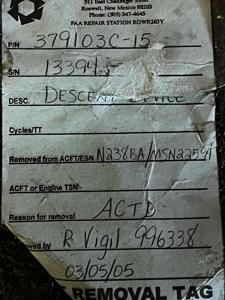 511 East Challenger Street
Roswell, New Mexico 88203
Phone: (505) 347-4645
FAA REPAIR STATION
P/N 379103C-15
S/N 13394-5
DESC. DESCENT DEVICE
Cycles/TT
Removed from ACFT/ESN N238BA/MSN22594
ACFT or Engine TSN
Reason for removal ACTD
by R Vigil 996338
03/05/05
REMOVAL TAG